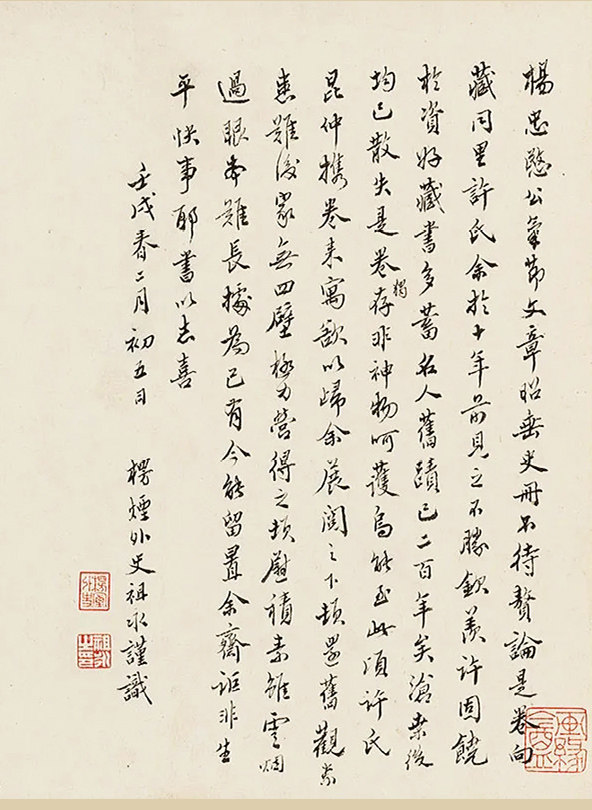 楊忠愍公氣節文章昭垂史冊不待贅論是卷向
藏同里許氏余於十年前見之不勝欽羨許固饒
於資好藏書多蓄名人舊蹟已二百年矣滄桑後
均已散失是卷獨存非神物呵護烏能至此頃許氏
昆仲攜卷來寓歙以歸余展閱之下頓還舊觀
患難後家無四壁極力營得之頓慰積素雖雲烟
過眼本難長據為己有今能留置余齋詎非生
平快事耶書以志喜
壬戌春二月初五日
楞煙外史祖永謹識